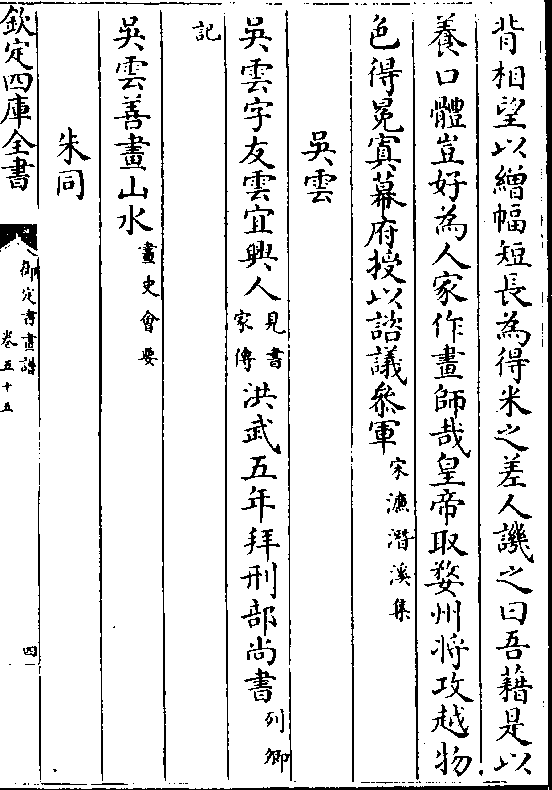 背相望以繒幅短長為得米之差人譏之曰吾藉是以
養口體豈好為人家作畫師哉皇帝取婺州將攻越物
色得冕寘幕府授以諮議叅軍宋濂潛溪集
吳雲
吳雲字友雲宜興人見書家傳洪武五年拜刑部尚書列卿
記
吳雲善畫山水畫史會要
朱同
欽定四庫全書
御定書畫譜
卷五十五
四